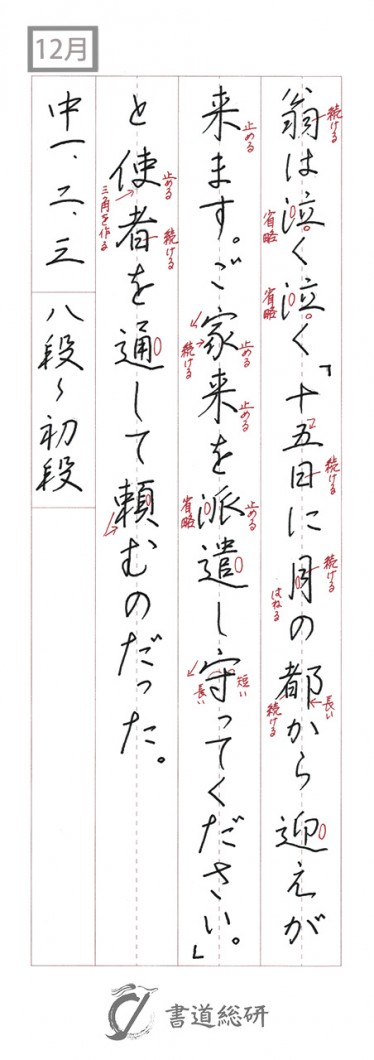 12月
翁は泣く泣く「十五日に月の都から迎えが
来ます。ご家来を派遣し守ってください。」
と使者を通して頼むのだった。
中一、二、三
八段〜初段
続ける
省略
省略
続ける
続ける
はねる
長い
続ける
止める
止める
続ける
止める
止める
省略
短い
長い
止める
三角を作る
続ける
書道総研